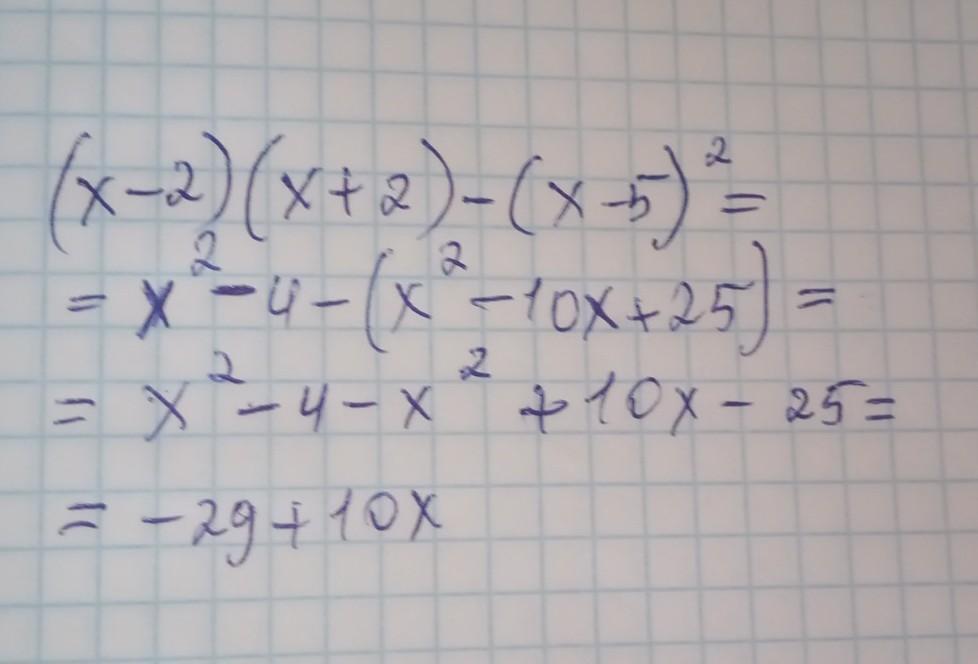 (x-2)(x+2)-(x-5)²=
= x²-4-(x²-10x+25)=
= x²-4-x² +10x-25=
= -29+10x